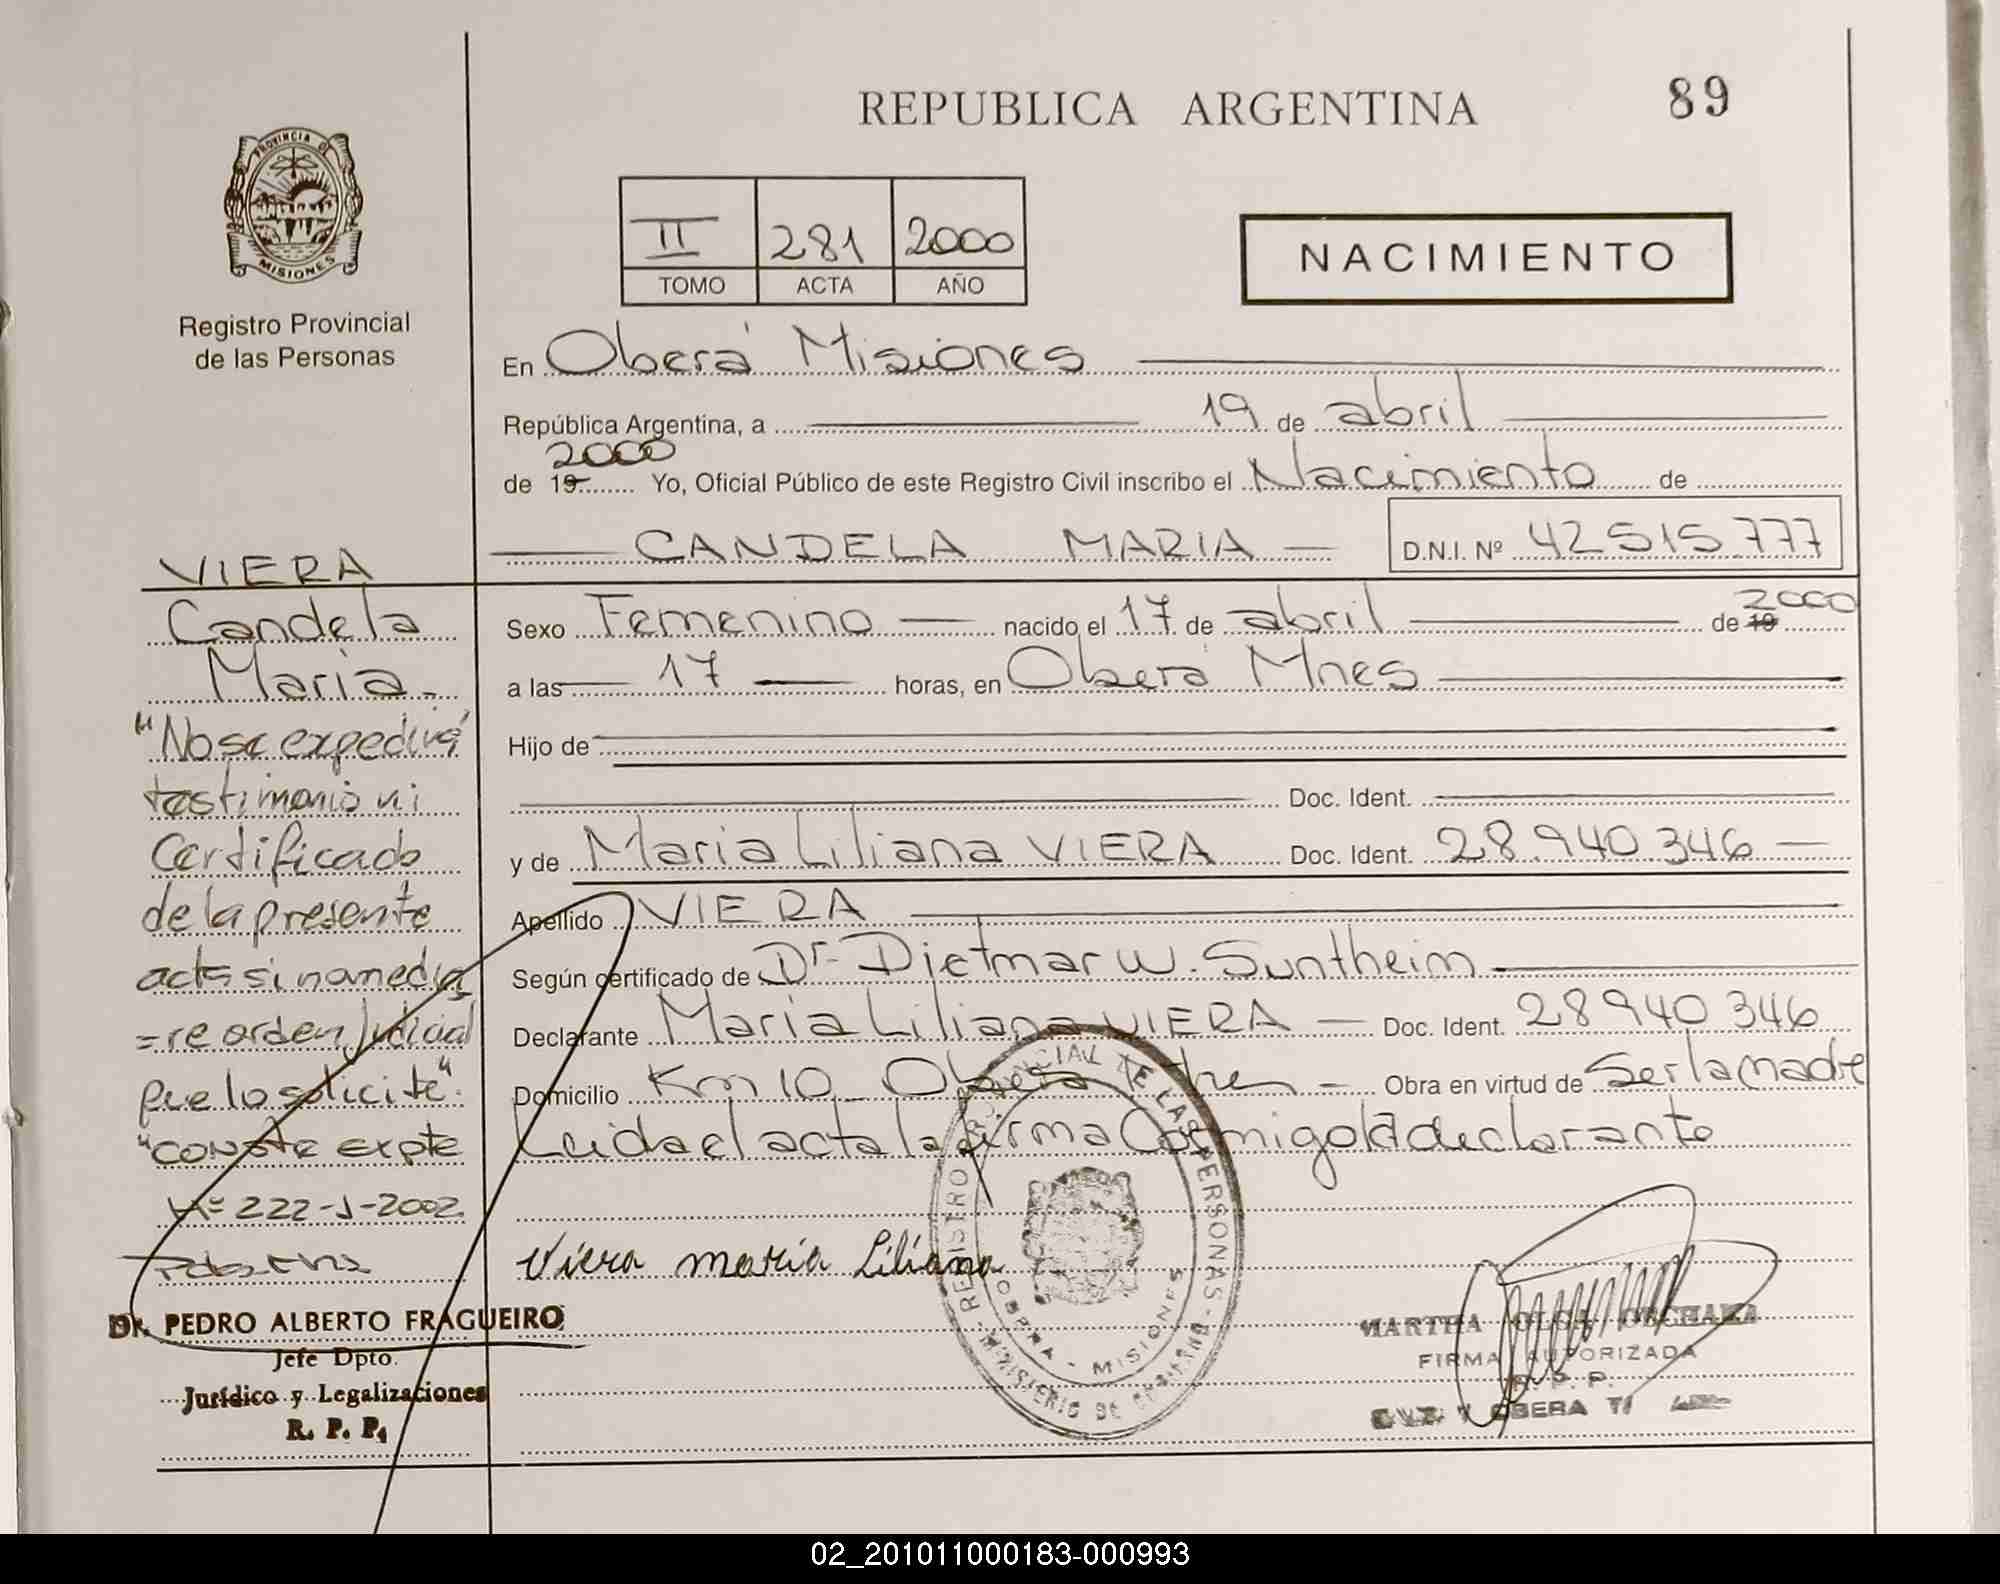 REPUBLICA ARGENTINA
89
PROVINCIA DE
MISIONES
Registro Provincial
de las Personas
II 281 2000
TOMO ACTA AÑO
NACIMIENTO
En Oberá Misiones
República Argentina, a 19 de abril
2000
de 19 Yo, Oficial Público de este Registro Civil inscribo el Nacimiento de
CANDELA MARIA D.N.I. Nº 42 515 777
VIERA
Candela
Maria.
"No se expedirá
testimonio ni
Certificado
de la presente
acta si no media
=re orden judicial
que lo solicite".
"CONSTE expte
Nº 222-J-2002
Dr. PEDRO ALBERTO FRAGUEIRO
Jefe Dpto.
Jurídico y Legalizaciones
R. P. P.
Sexo Femenino nacido el 17 de abril de 19 2000
a las 17 horas, en Oberá Mnes
Hijo de
Doc. Ident.
y de Maria Liliana VIERA Doc. Ident. 28.940.346
Apellido VIERA
Según certificado de Dr. Dietmar W. Suntheim
Declarante Maria Liliana VIERA Doc. Ident. 28940346
Domicilio Km 10 Oberá Obra en virtud de Ser la madre
Leida el acta la firma Conmigo la declarante
Viera maria Liliana
REGISTRO PROVINCIAL DE LAS PERSONAS - MINISTERIO DE GOBIERNO
OBERA - MISIONES
MARTHA OLGA
FIRMA AUTORIZADA
R. P. P.
OBERA
02_201011000183-000993